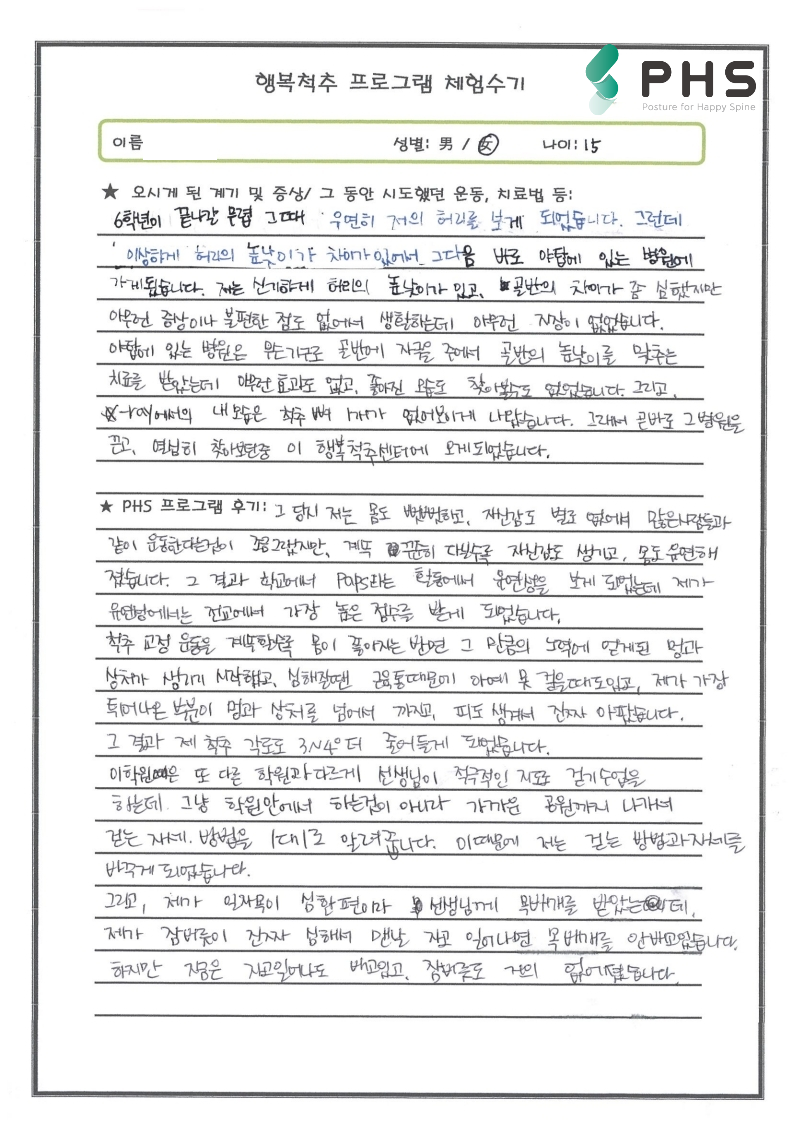 행복척추 프로그램 체험수기
PHS
Posture for Happy Spine
이름 성별: 男 / 女 나이: 15
★ 오시게 된 계기 및 증상/ 그 동안 시도했던 운동, 치료법 등:
6학년이 끝나갈 무렵 그때 우연히 저의 허리를 보게 되었습니다. 그런데
이상하게 허리의 높낮이가 차이가 있어서 그다음 바로 야탑에 있는 병원에
가게됩습니다. 저는 신기하게 허리의 높낮이가 있고, 골반의 차이가 좀 심했지만
아무런 증상이나 불편한 점도 없어서 생활하는데 아무런 지장이 없었습니다.
야탑에 있는 병원은 무슨기구로 골반에 자극을 주어서 골반의 높낮이를 맞추는
치료를 받았는데 아무런효과도 없고, 좋아진 모습도 찾아볼수도 없었습니다. 그리고,
X-ray에서의 내모습은 척추 뼈 1개가 없어보이게 나왔습니다. 그래서 곧바로 그병원을
끈고, 열심히 찾아보던중 이 행복척추센터에 오게되었습니다.
★ PHS 프로그램 후기: 그 당시 저는 몸도 뻣뻣하고, 자신감도 별로 없어서 많은사람들과
같이 운동한다는점이 조용그랬지만, 계뚝 꾸준히 다볼수록 자신감도 생기고, 몸도유연해
졌습니다. 그 결과 학교에서 Paps라는 활동에서 유연성을 보게 되었는데 제가
유연성에서는 전교에서 가장 높은 점수를 받게 되었습니다.
척추 교정 운동을 계뚝할수록 몸이 좋아지는 반면 그 만큼의 노력에 얻게된 멍과
상처가 생기기 시작했고, 심해질땐 근육통때문에 아예 못 걸을때도있고, 제가 가장
튀어나온 부분이 멍과 상처를 넘어서 까지고, 피도 생겨서 진짜 아팠습니다.
그 결과 제 척추 각도도 3~4°더 줄어들게 되었습니다.
이학원은 또 다른 학원과다르게 선생님이 적극적인 지도 걷기수업을
하는데 그냥 학원안에서 하는것이 아니라 가까운 공원까지 나가셔
걷는 자세. 방법을 1대1로 알려줍니다. 이때문에 저는 걷는 방법과자세를
바꾸게되었습니다.
그리고, 제가 일자목이 심한편이라 선생님께 목베개를 받았는데,
제가 잠버릇이 진짜 심해서 맨날 자고 일어나면 목베개를 안비고있습니다.
하지만 지금은 자고일어나도 비고있고, 잠버릇도 거의 없어졌습니다.